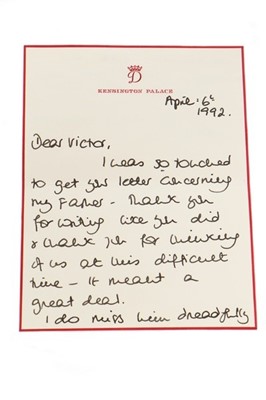 D
KENSINGTON PALACE
April 6th
1992.
Dear Victor,
I was so touched
to get yr letter concerning
my Father - thank you
for writing like you did
& thank you for thinking
of us at this difficult
time - it meant a
great deal.
I do miss him dreadfully